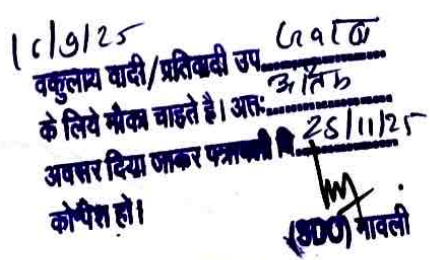 16/9/25
वकुलाय वादी/प्रतिवादी उप. जवाब
के लिये मौका चाहते है। अतः अंतिम
अवसर दिया जाकर पत्रावली दि. 25/11/25
को पेश हो।
(SDO) मावली